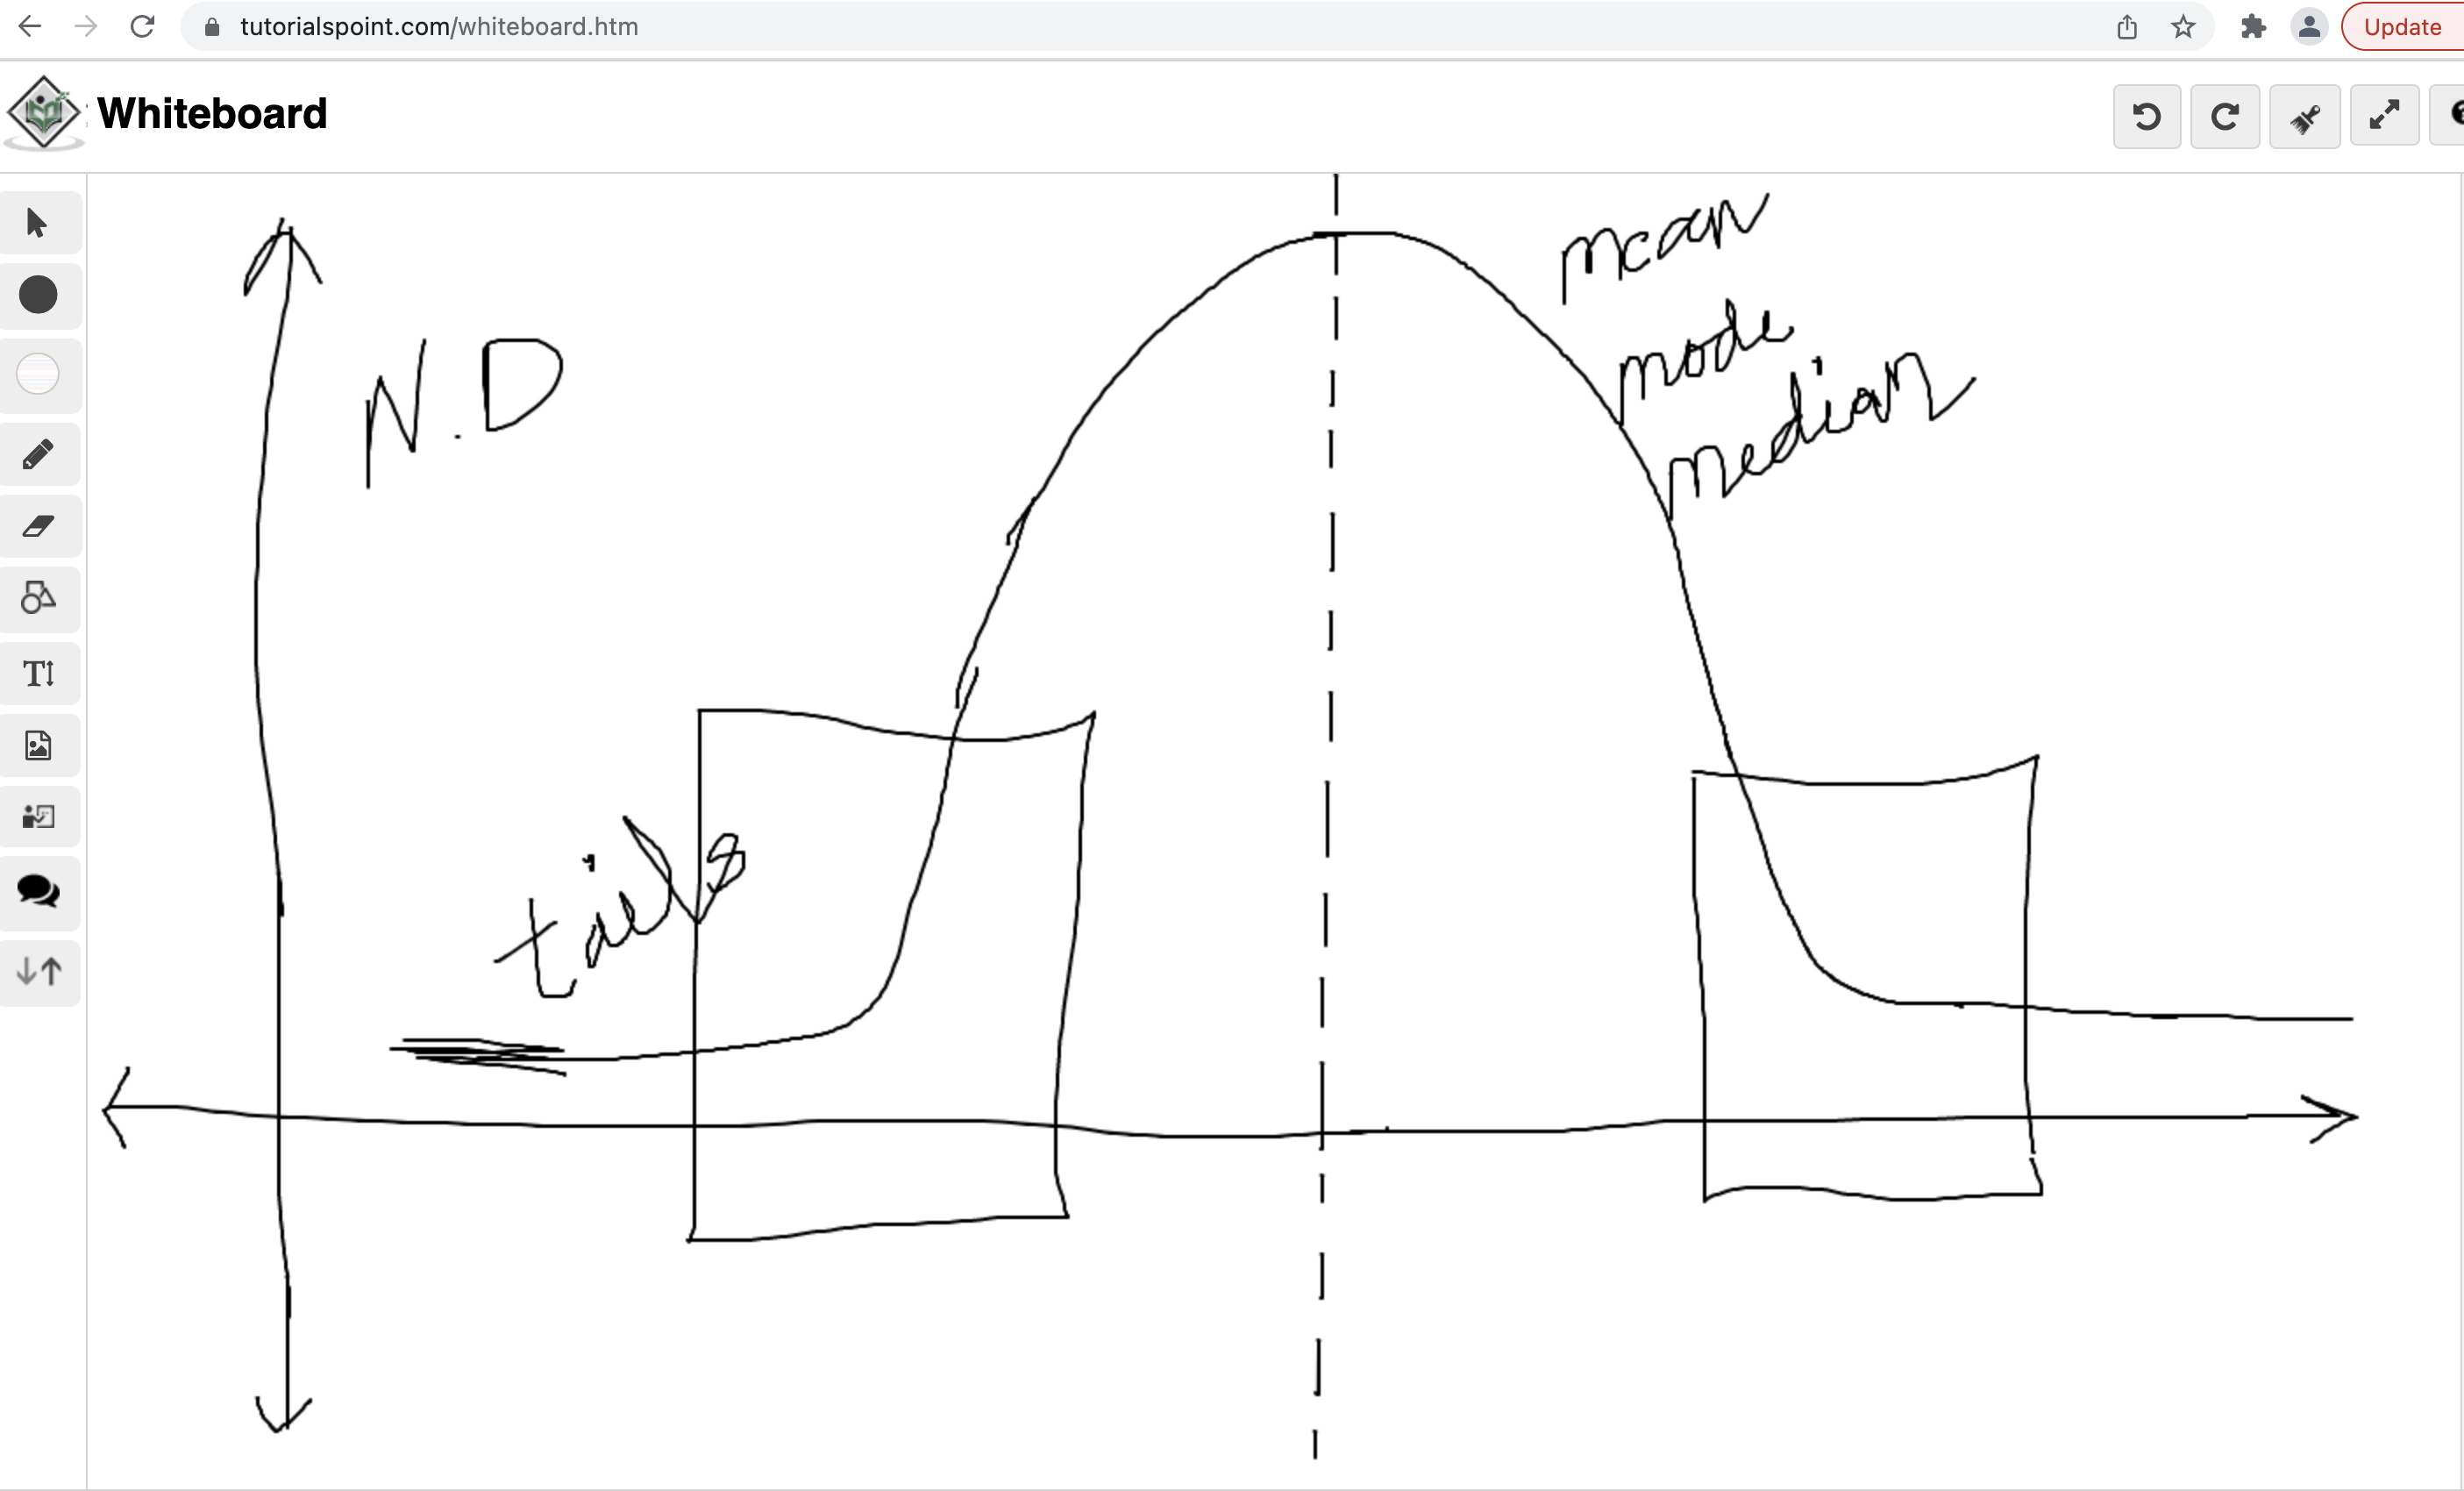 tutorialspoint.com/whiteboard.htm
Update
Whiteboard
mean
mode
median
N.D
tails